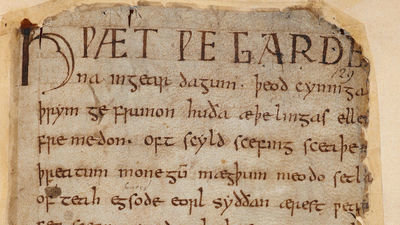 HǷÆT ǷE GARDE
na ingear dagum. þeod cyninga
þrym ge frunon huða æþelingas ellen
fremedon. oft scyld scefing sceaþe
þreatum monegū mægþum meodo setla
of teah egsode eorl syððan ærest